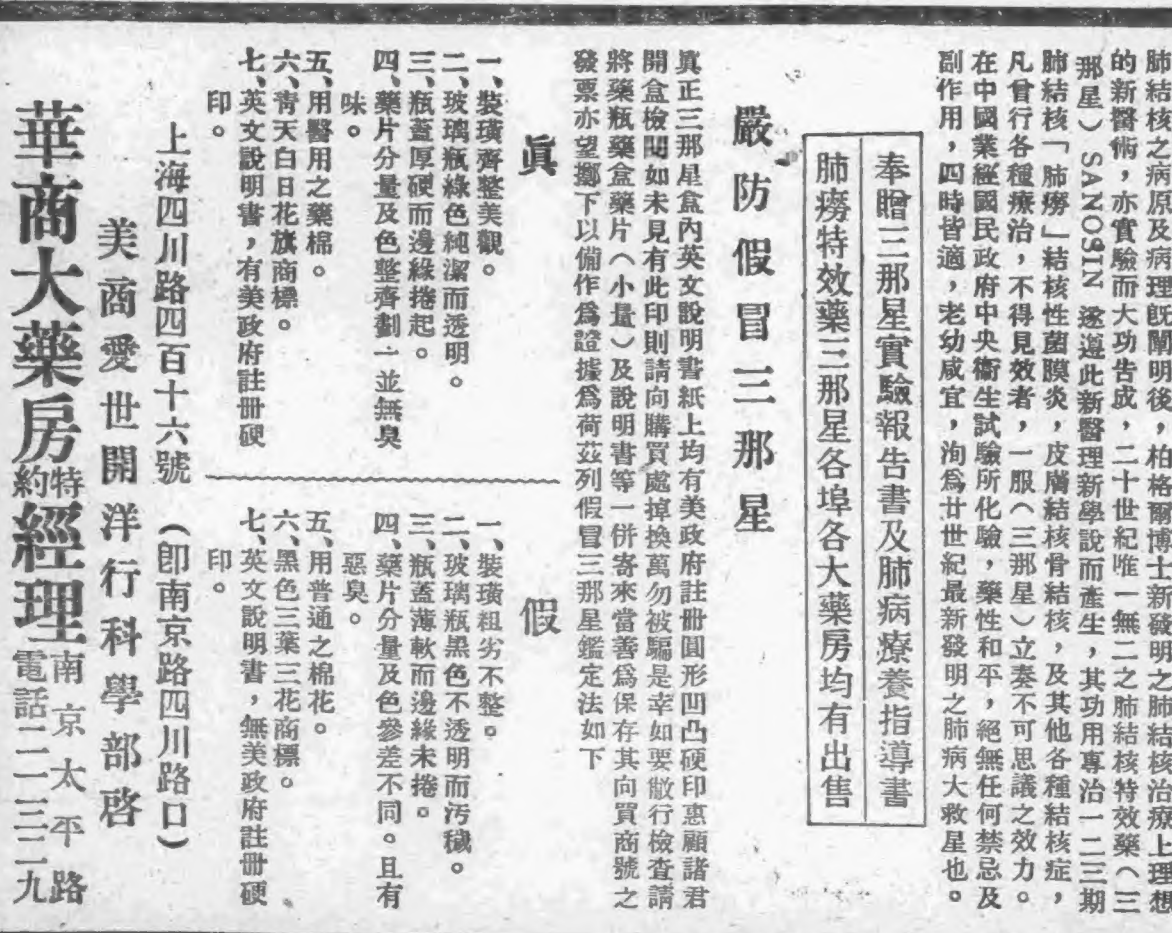 肺結核之病原及病理既闡明後，柏格爾博士新發明之肺結核治療上理想
的新醫術，亦實驗而大功告成，二十世紀唯一無二之肺結核特效藥（三
那星）SANOSIN 遂遵此新醫理新學說而產生，其功用專治一二三期
肺結核「肺癆」結核性菌膜炎，皮膚結核骨結核，及其他各種結核症，
凡曾行各種療治，不得見效者，一服（三那星）立奏不可思議之效力。
在中國業經國民政府中央衞生試驗所化驗，藥性和平，絕無任何禁忌及
副作用，四時皆適，老幼咸宜，洵爲廿世紀最新發明之肺病大救星也。
奉贈三那星實驗報告書及肺病療養指導書
肺癆特效藥三那星各埠各大藥房均有出售
嚴防假冒三那星
眞正三那星盒內英文說明書紙上均有美政府註册圓形凹凸硬印惠顧諸君
開盒檢閱如未見有此印則請向購買處掉換萬勿被騙是幸如要散行檢查請
將藥瓶藥盒藥片（小量）及說明書等一併寄來當善爲保存其向買商號之
發票亦望擲下以備作爲證據爲荷茲列假冒三那星鑑定法如下
眞
一、裝璜齊整美觀。
二、玻璃瓶綠色純潔而透明。
三、瓶蓋厚硬而邊緣捲起。
四、藥片分量及色整齊劃一並無臭
味。
五、用醫用之藥棉。
六、靑天白日花旗商標。
七、英文說明書，有美政府註册硬
印。
假
一、裝璜粗劣不整。
二、玻璃瓶黑色不透明而汚穢。
三、瓶蓋薄軟而邊緣未捲。
四、藥片分量及色參差不同。且有
惡臭。
五、用普通之棉花。
六、黑色三葉三花商標。
七、英文說明書，無美政府註册硬
印。
上海四川路四百十六號（卽南京路四川路口）
美商愛世開洋行科學部啓
華商大藥房特約經理南京太平路
電話二一三二九